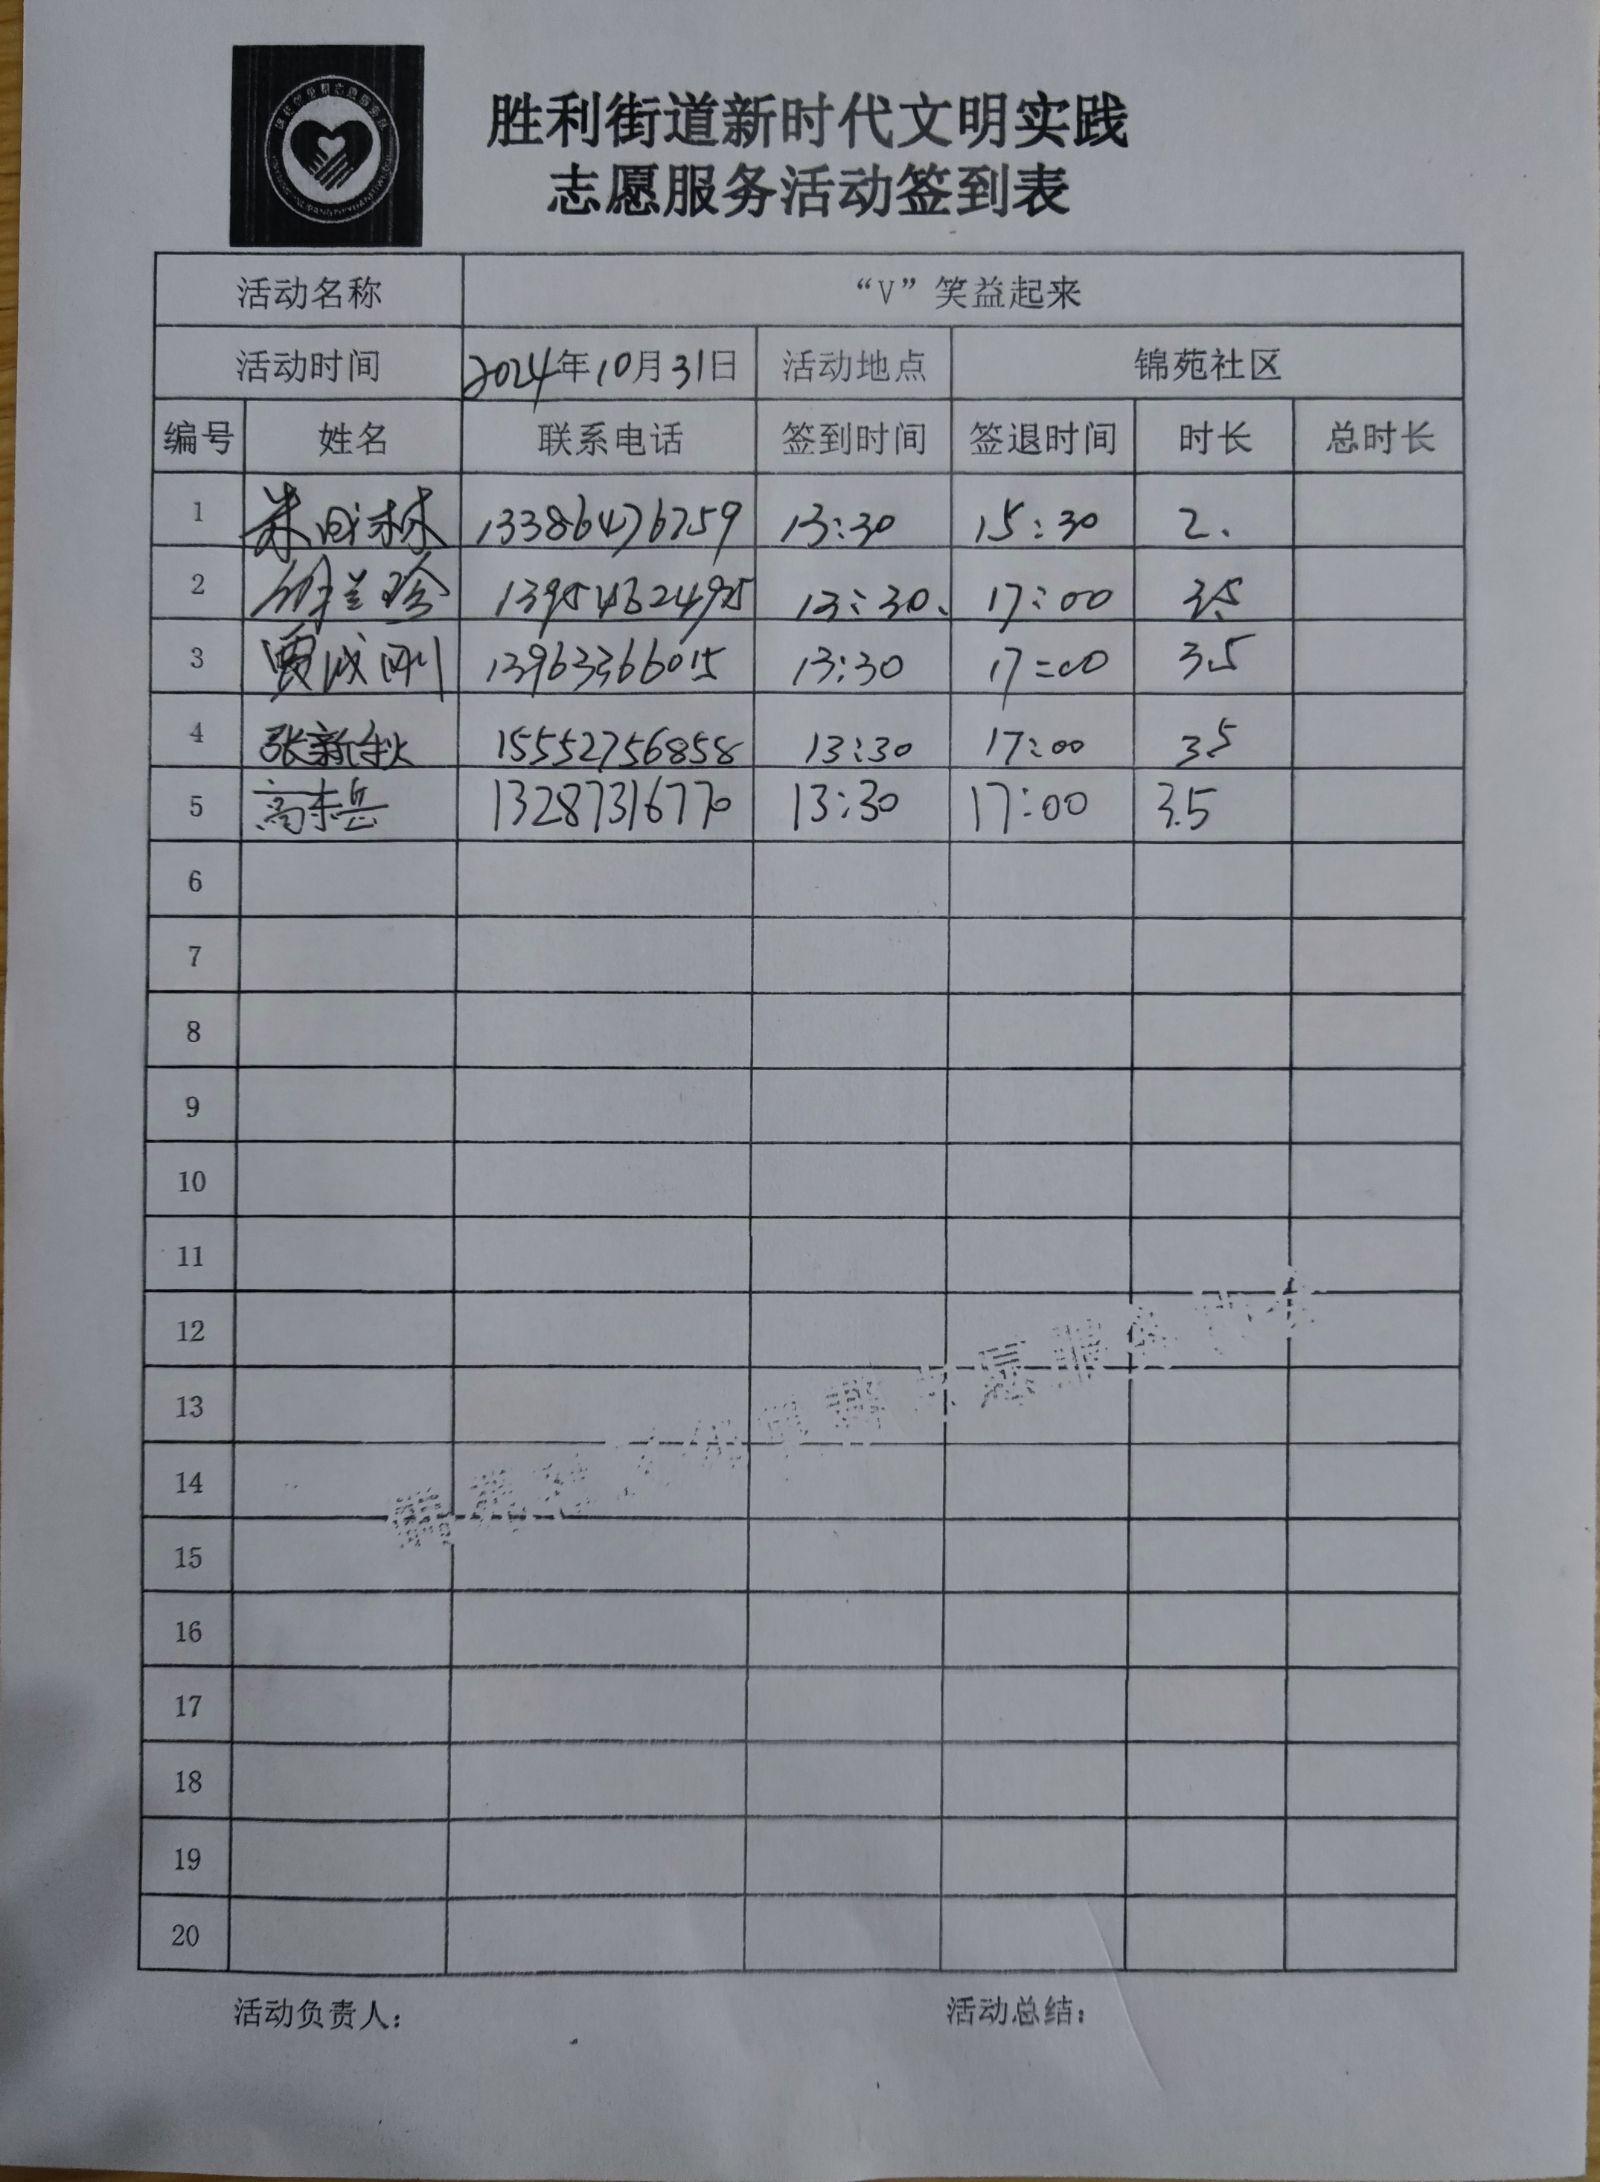 胜利街道新时代文明实践
志愿服务活动签到表
活动名称 “V”笑益起来
活动时间 2024年10月31日 活动地点 锦苑社区
编号 姓名 联系电话 签到时间 签退时间 时长 总时长
1 13:30 15:30 2.
2 13:30、 17:00 3.5
3 贾成刚 13963366015 13:30 17:00 3.5
4 张新秋 15552756858 13:30 17:00 3.5
5 13287316770 13:30 17:00 3.5
6
7
8
9
10
11
12
13
14
15
16
17
18
19
20
活动负责人： 活动总结：